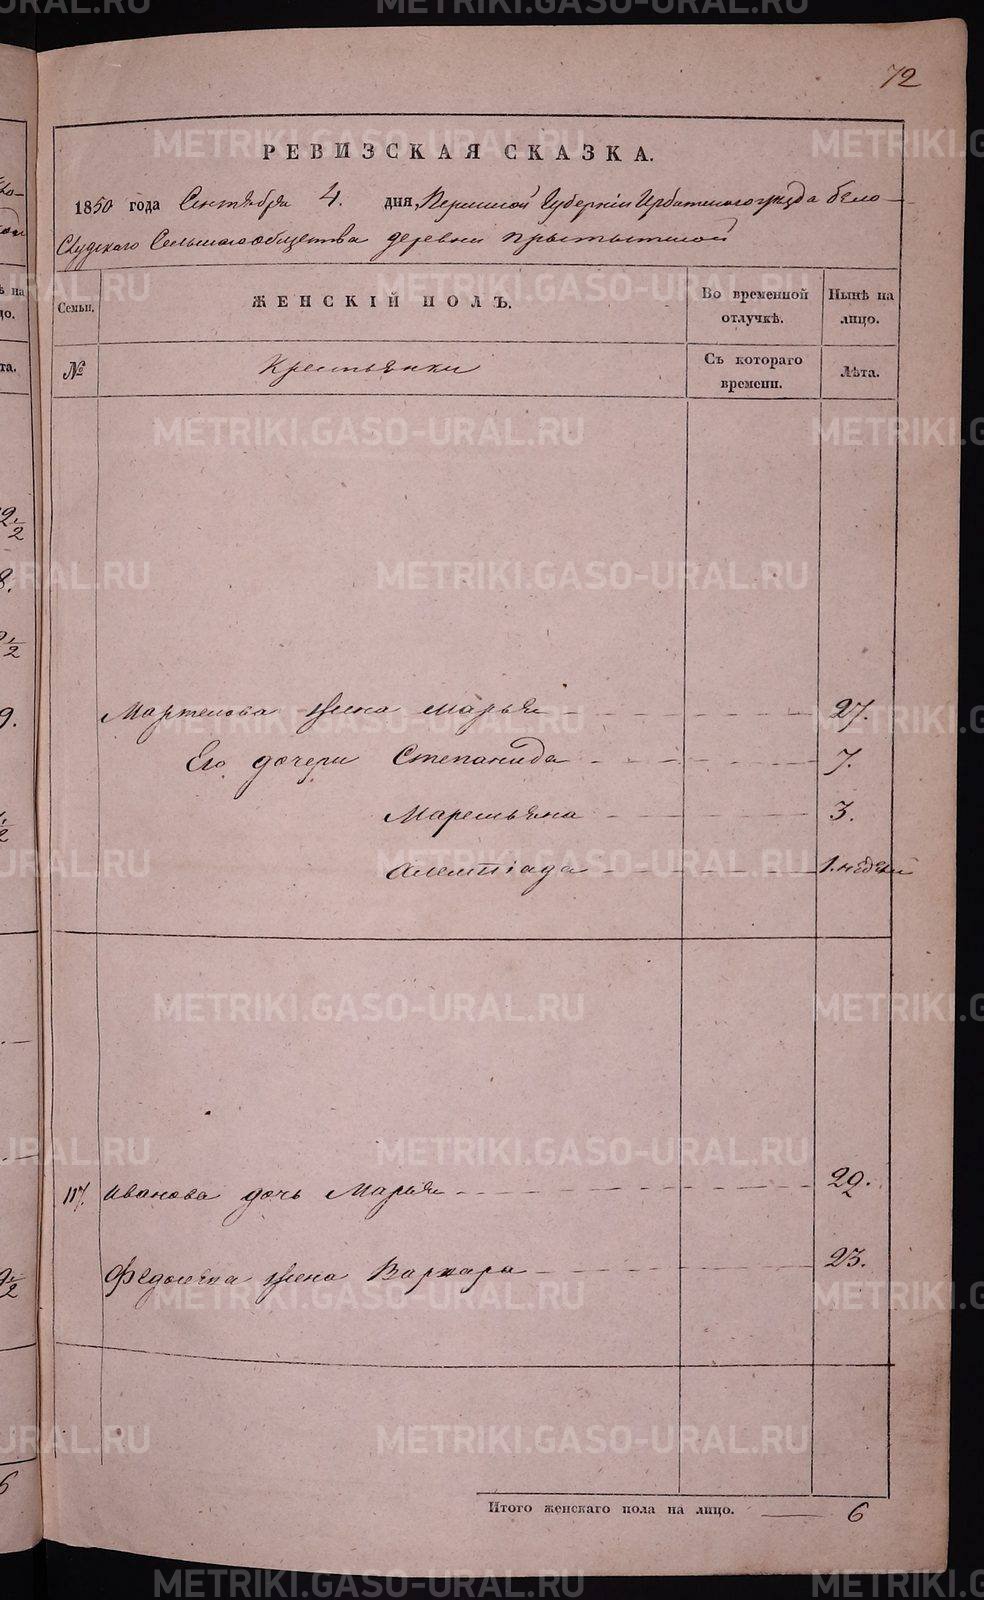 72
РЕВИЗСКАЯ СКАЗКА.
1850 года Сентября 4. дня, Пермской Губернiи Ирбитского уезда бело-
Слудского Сельского общества деревни
Семьи. ЖЕНСКIЙ ПОЛЪ. Во временной отлучкѣ. Нынѣ на лицо.
№ Крестьянки Съ котораго времени. Лѣта.
Мартемова жена Марья 27.
Его дочери Степанида 7.
Маремьяна 3.
1. недели
117. Иванова дочь Марья 29.
жена Варвара 23.
Итого женскаго пола на лицо. 6
METRIKI.GASO-URAL.RU